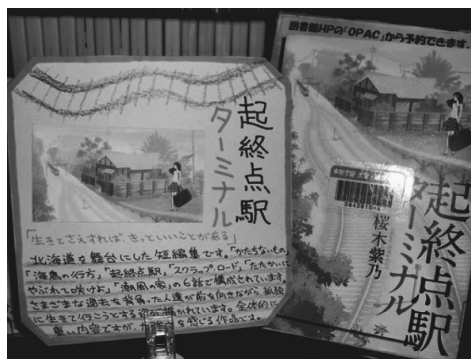 起終点駅
ターミナル
「生きてさえすれば、きっといいことがある」
北海道を舞台にした短編集です。「かたちないもの」
「海鳥の行方」「起終点駅」「スクラップ・ロード」「たたかいに
やぶれて咲けよ」「潮風の家」の6話で構成されています。
さまざまな過去を背負った人達が前を向きながら孤独
に生きて行こうとする姿が描かれています。全体的に
重い内容ですが、
を感じる作品です。
図書館HPの「OPAC」から予約できます。
起終点駅
ターミナル
桜木紫乃